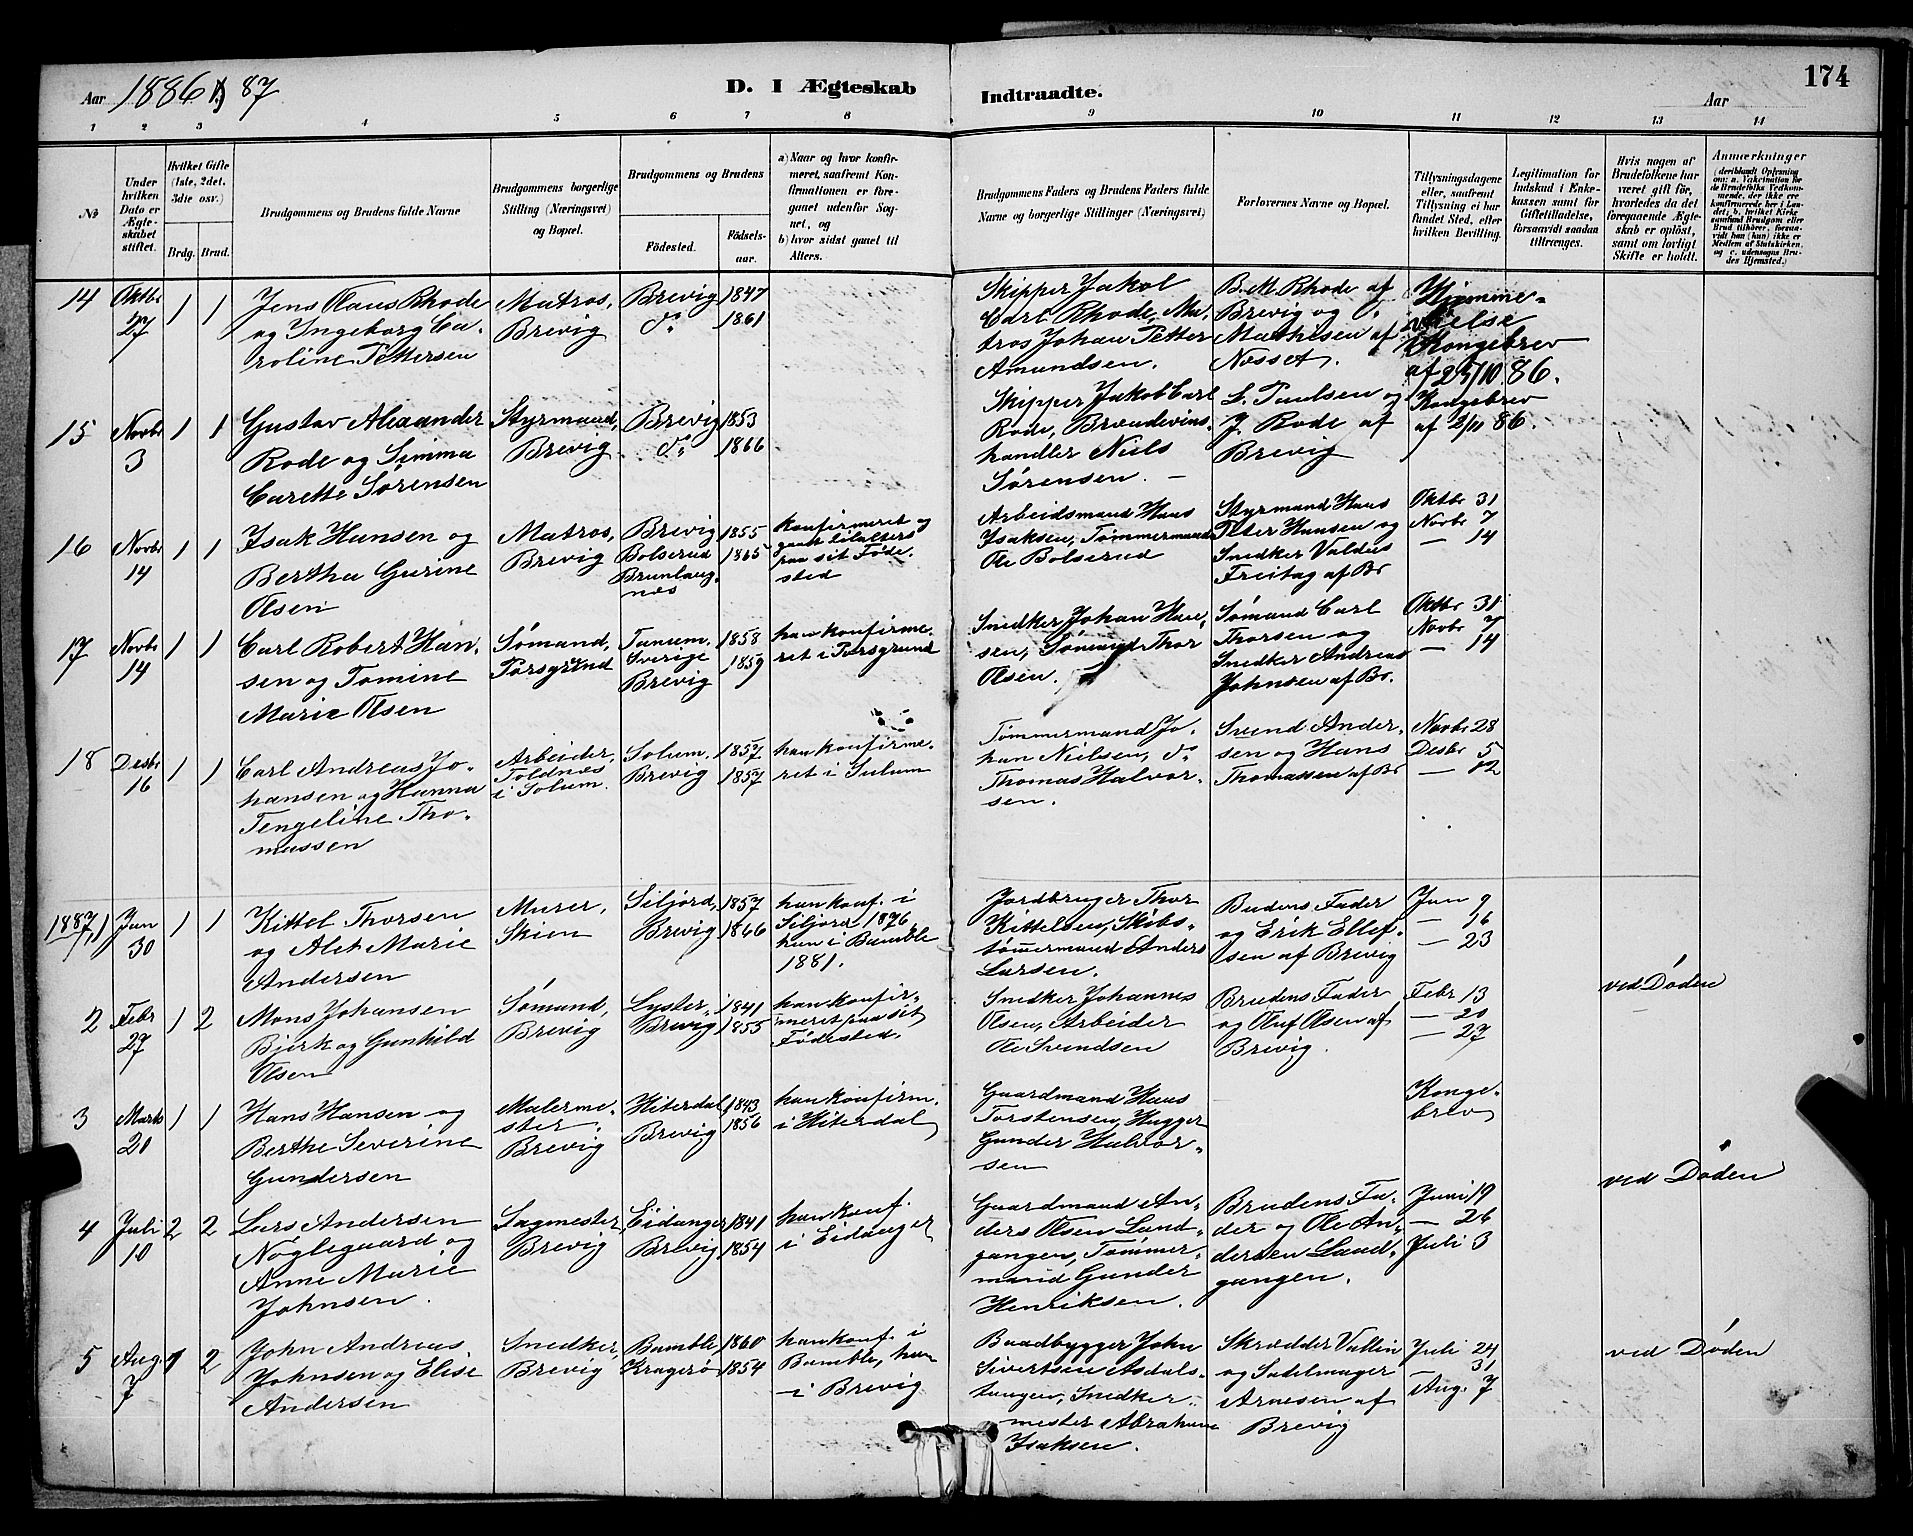 Aar 1886 & 87
D. I Ægteskab Indtraadte.
Aar
174
1 2 3 4 5 6 7 8 9 10 11 12 13 14
№
Under hvilken Dato er Ægteskabet stiftet.
Hvilket Gifte (1ste, 2det, 3die osv.)
Brdg. Brud.
Brudgommens og Brudens fulde Navne
Brudgommens borgerlige Stilling (Næringsvei) og Bopæl.
Brudgommens og Brudens
Fødested.
Fødselsaar.
a) Naar og hvor konfirmeret, saafremt Konfirmationen er foregaaet udenfor Sognet, og
b) hvor sidst gaaet til Alters.
Brudgommens Faders og Brudens Faders fulde Navne og borgerlige Stillinger (Næringsvei)
Forlovernes Navne og Bopæl.
Tillysningsdagene eller, saafremt Tillysning ei har fundet Sted, efter hvilken Bevilling.
Legitimation for Indskud i Enkekassen samt for Giftetilladelse, forsaavidt saadan tiltrænges.
Hvis nogen af Brudefolkene har været gift før, hvorledes da det foregaaende Ægteskab er opløst, samt om lovligt Skifte er holdt.
Anmærkninger
(deriblandt Oplysning om: a. Vakcination for de Brudefolks Vedkommende, der ikke ere konfirmerede her i Landet; b. hvilket Kirkesamfund Brudgom eller Brud tilhører, forsaavidt han (hun) ikke er Medlem af Statskirken, og c. udensogns Brudes Hjemsted.)
14 Oktbr 27 1 1
Jens Claus Rhode
og Ingeborg Ca-
roline Pettersen
Matros,
Brevig
Brevig 1847
do 1861
Skipper Jakob
Carl Rhode, Ma-
tros Johan Petter
Amundsen.
B. M. Rhode af
Brevig og
Mathisen af
Nesset.
Hjemme-
vielse
Kongebrev
af 25/10 86.
15 Novbr 3 1 1
Gustav Alexander
Rode og Simma
Carette Sørensen
Styrmand,
Brevig
Brevig 1853
do 1866
Skipper Jakob Carl
Rode, Brændevins-
handler Niels
Sørensen. —
L. Paulsen og
J. Rode af
Brevig
Kongebrev
af 2/11 86.
16 Novbr 14 1 1
Isak Hansen og
Bertha Gurine
Olsen
Matros,
Brevig
Brevig 1855
Bolserud 1865
Brunlaug-
næs
konfirmeret og
gaat tilalters
paa sit Føde-
sted
Arbeidsmand Hans
Isaksen, Tømmermand
Ole Bolserud
Styrmand Hans
Peter Hansen og
Snedker Valdus
Freitag af Br
Oktbr 31
Novbr 7
— 14
17 Novbr 14 1 1
Carl Robert Han-
sen og Tomine
Marie Olsen
Sømand,
Porsgrund
Tanum. 1858
Sverige
Brevig 1859
han konfirme-
ret i Porsgrund
Snedker Johan Han-
sen, Sømand Thor
Olsen.
Sømand Carl
Thorsen og
Snedker Andreas
Johnsen af Br.
Oktbr 31
Novbr 7
— 14
18 Desbr 16 1 1
Carl Andreas Jo-
hansen og Hanna
Tengeline Tho-
massen
Arbeider,
Toldnes
i Solum.
Solum. 1857
Brevig 1857
han konfirme-
ret i Solum
Tømmermand Jo-
han Nielsen, do
Thomas Halvor-
sen.
Svend Ander-
sen og Hans
Thomassen af Br
Novbr 28
Desbr 5
— 12
1887, 1 Jan 30 1 1
Kittel Thorsen
og Alet Marie
Andersen
Murer,
Skien
Siljord, 1857
Brevig 1866
han konf. i
Siljord 1876
hun i Bamble
1881.
Jordbruger Thor
Kittelsen, Skibs-
tømermand Anders
Larsen.
Brudens Fader
og Erik Ellef-
sen af Brevig
Jan 9
— 16
— 23
2 Febr 27 1 2
Mons Johansen
Bjerk og Gunhild
Olsen
Sømand,
Brevig
Lyster, 1841
Brevig 1855
han konfir-
meret paa sit
Fødested.
Snedker Johannes
Olsen, Arbeider
Ole Svendsen
Brudens Fader
og Oluf Olsen af
Brevig.
Febr 13
— 20
— 27
ved Døden
3 Marts 20 1 1
Hans Hansen og
Berthe Severine
Gundersen
Malerme-
ster,
Brevig
Hiterdal 1843
Brevig 1856
han konfirm.
i Hiterdal
Gaardmand Hans
Torstensen, Hugger
Gunder Halvor-
sen
Konge-
brev
4 Juli 10 2 2
Lars Andersen
Nøglegaard og
Anne Marie
Johnsen.
Sagmester,
Brevig
Eidanger 1841
Brevig 1854
han konf.
i Eidanger
Gaardmand An-
ders Olsen Land-
gangen, Tømmer-
mand Gunder
Henriksen.
Brudens Fa-
der og Ole An-
dersen Land-
gangen.
Juni 19
— 26
Juli 3
ved Døden
5 Aug. 7 1 2
John Andreas
Johnsen og Elise
Andersen
Snedker,
Brevig
Bamble, 1860
Kragerø 1854
han konf. i
Bamble, hun
i Brevig
Baadbygger John
Sivertsen Asdals-
tangen, Snedker-
mester Abraham
Isaksen.
Skrædder Vallin
og Sadelmager
Arnesen af
Brevig
Juli 24
— 31
Aug. 7
ved Døden